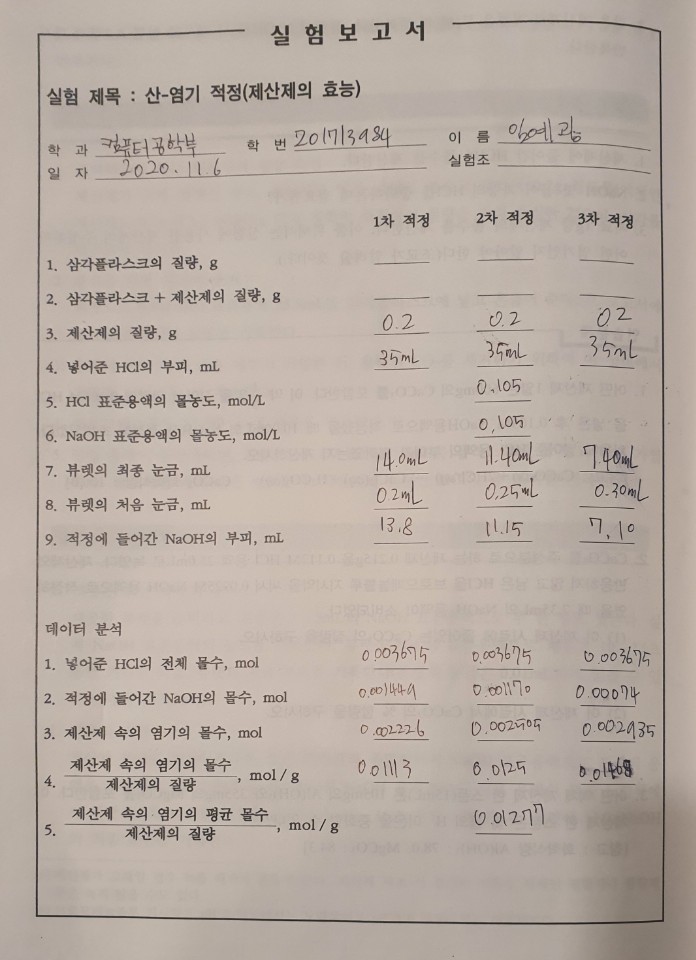 실험보고서
실험 제목 : 산-염기 적정(제산제의 효능)
학 과 컴퓨터공학부 학 번 201713984 이 름 임예광
일 자 2020.11.6 실험조
1차 적정 2차 적정 3차 적정
1. 삼각플라스크의 질량, g
2. 삼각플라스크 + 제산제의 질량, g
3. 제산제의 질량, g 0.2 0.2 02
4. 넣어준 HCl의 부피, mL 35mL 35mL 35mL
5. HCl 표준용액의 몰농도, mol/L 0.105
6. NaOH 표준용액의 몰농도, mol/L 0.105
7. 뷰렛의 최종 눈금, mL 14.0mL 11.40mL 7.40mL
8. 뷰렛의 처음 눈금, mL 0.2mL 0.25mL 0.30mL
9. 적정에 들어간 NaOH의 부피, mL 13.8 11.15 7.10
데이터 분석
1. 넣어준 HCl의 전체 몰수, mol 0.003675 0.003675 0.003675
2. 적정에 들어간 NaOH의 몰수, mol 0.001449 0.001170 0.00074
3. 제산제 속의 염기의 몰수, mol 0.002226 0.002505 0.002935
4. 제산제 속의 염기의 몰수 / 제산제의 질량, mol/g 0.01113 0.0125
5. 제산제 속의 염기의 평균 몰수 / 제산제의 질량, mol/g 0.01277